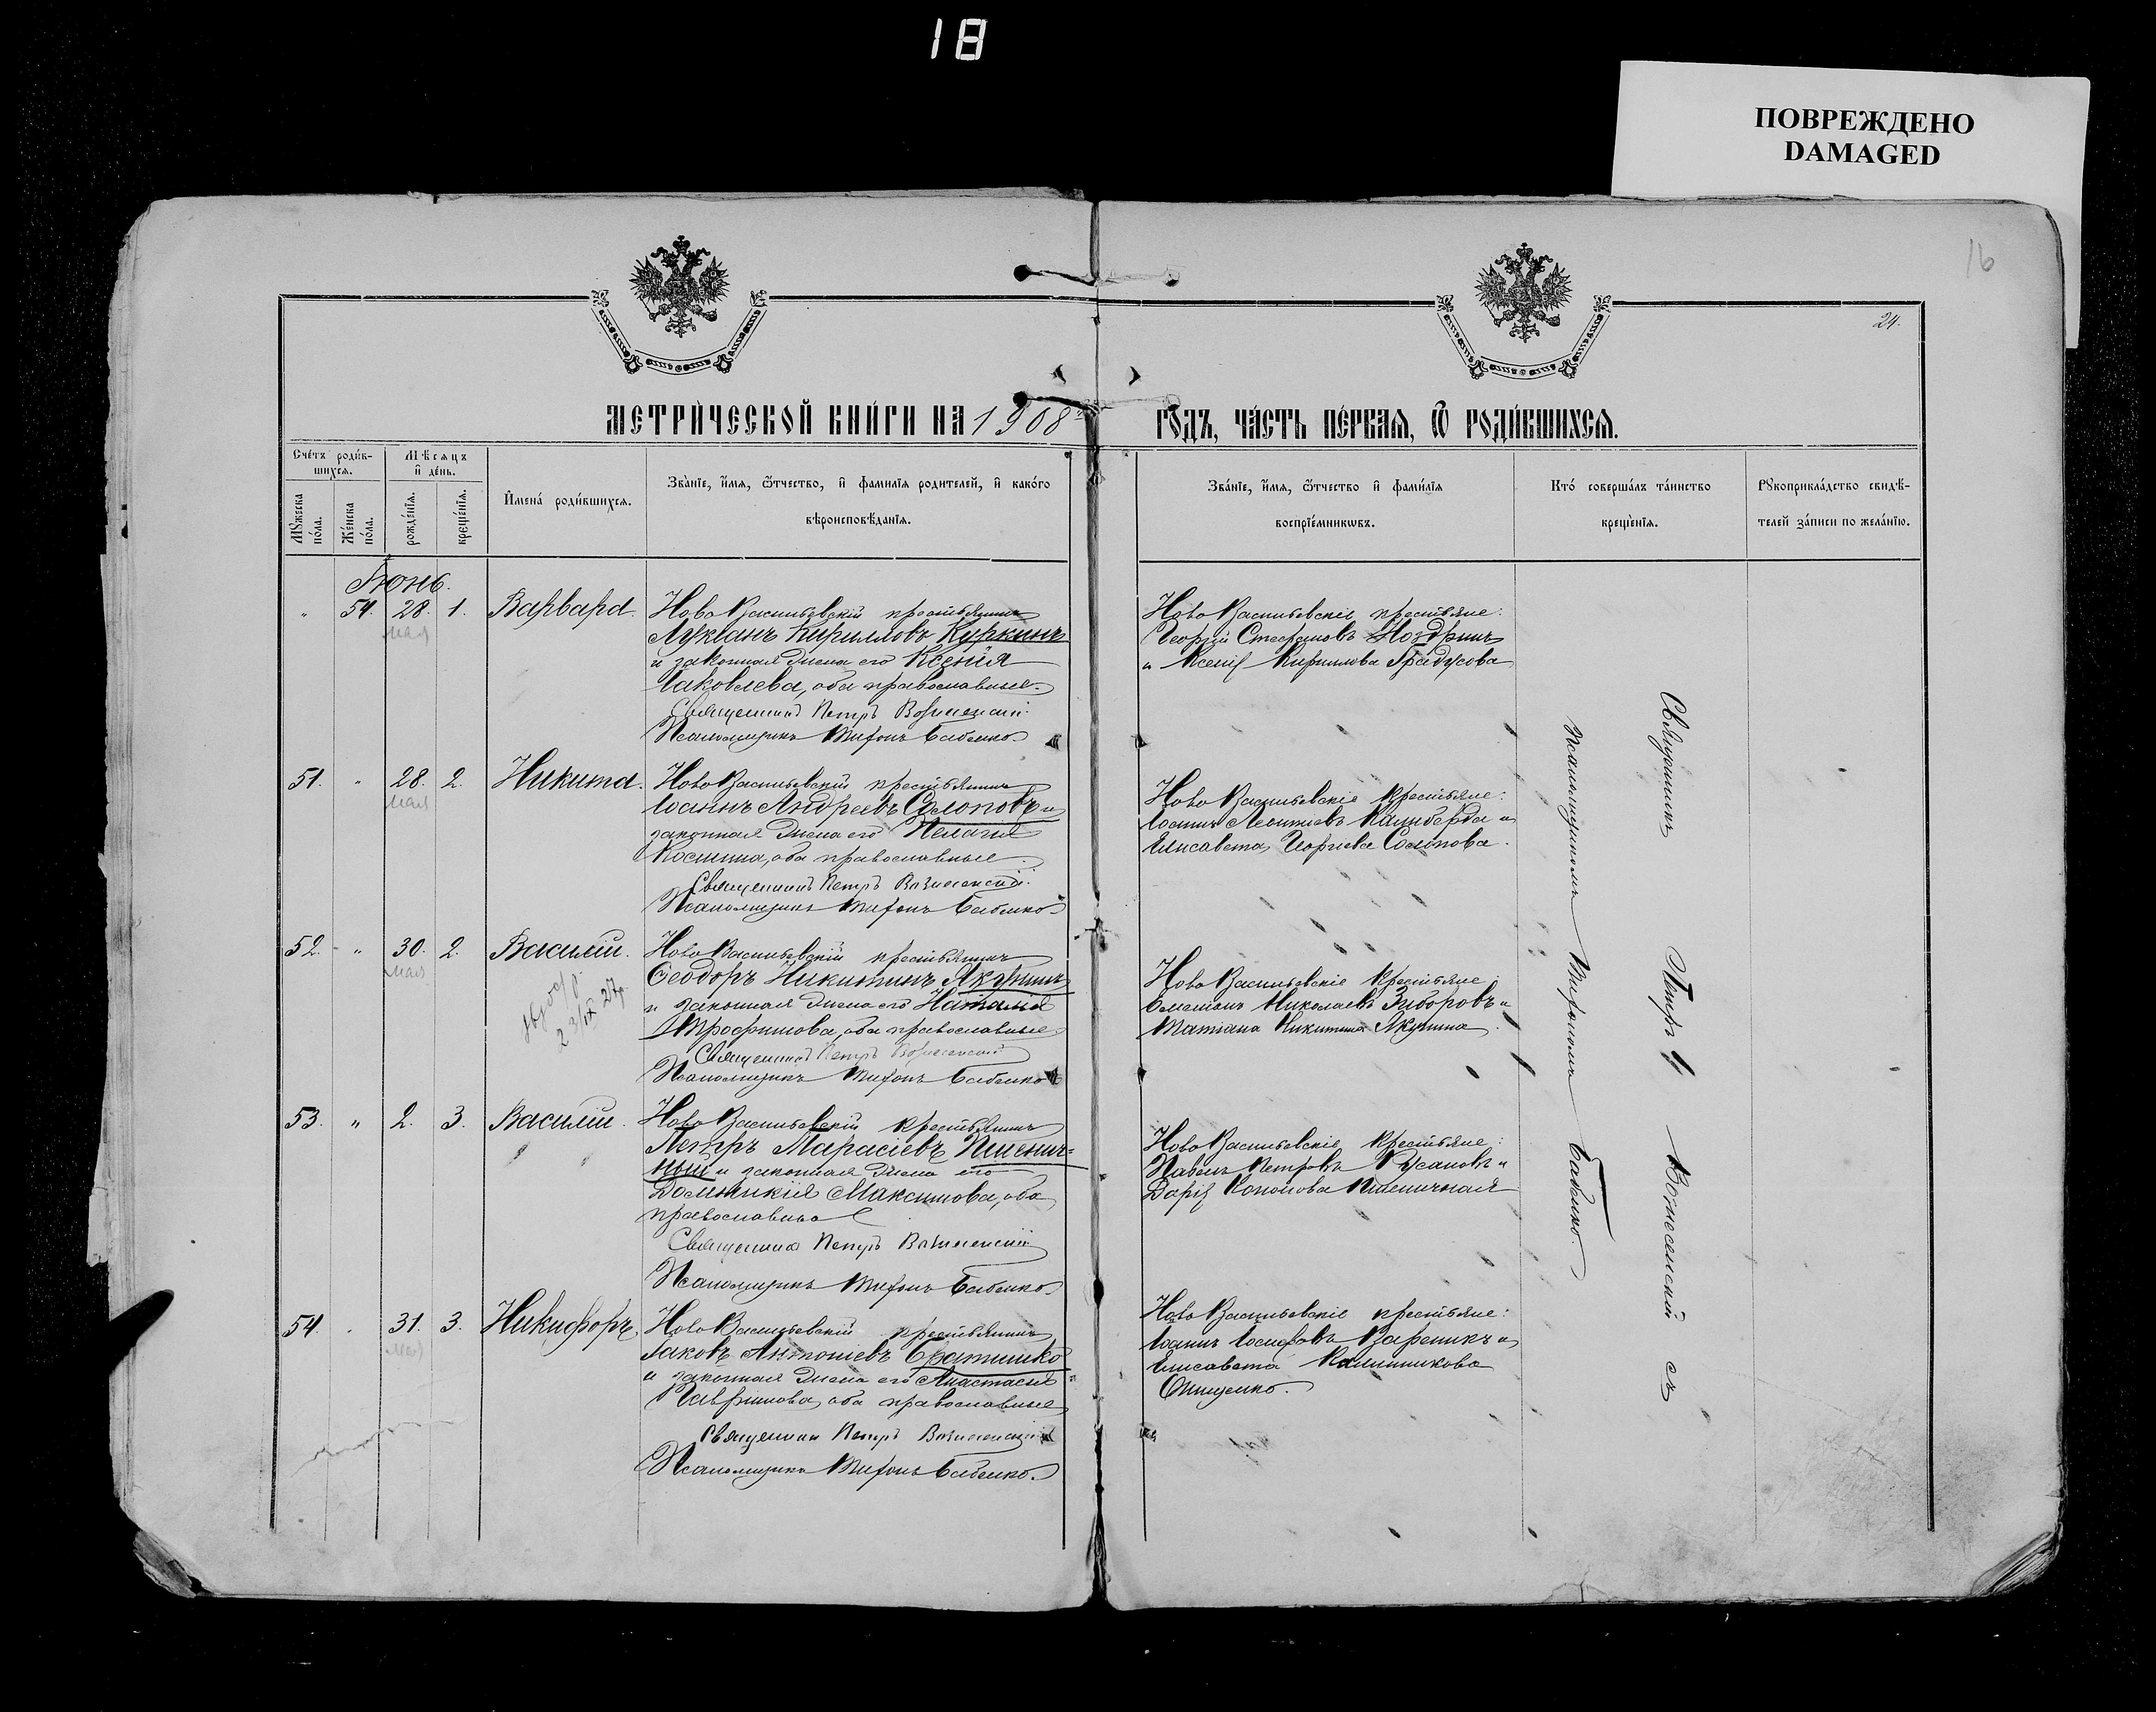 18
ПОВРЕЖДЕНО
DAMAGED
16
24.
МЕТРИ́ЧЕСКОЙ КНИ́ГИ НА 1908 ГО́ДЪ, ЧА́СТЬ ПЕ́РВАЯ, Ѿ РОДИ́ВШИХСЯ.
Сче́тъ роди́в-
шихся.
Мѣсяцъ
и҆ де́нь.
Мꙋжеска
по́ла.
Же́нска
по́ла.
рожде́нїя.
креще́нїя.
И҆мена́ роди́вшихся.
Зва́нїе, и҆́мя, ѻ҆́тчество, и҆ фами́лїя родителей, и҆ како́го
вѣроисповѣ́данїя.
Зва́нїе, и҆́мя, ѻ҆́тчество и҆ фами́лїя
воспрїе́мникѡвъ.
Кто́ соверша́лъ та́инство
креще́нїя.
Рꙋкоприкла́дство свидѣ́-
телей за́писи по жела́нїю.
Іюнь.
" 54. 28. 1. Варвара.
мая
Ново Васильевскій крестьянинъ
Лукіанъ Кирилловъ Куркинъ
и законная жена его Ксенія
Іаковлева, оба православные.
Священникъ Петръ Вознесенскій.
Псаломщикъ Тифонъ Бабенко
Ново Васильевскіе крестьяне:
Георгій Стефановъ Ноздринъ
и Ксенія Кириллова Градусова
51. " 28. 2. Никита.
мая
Ново Васильевскій крестьянинъ
Іоаннъ Андреевъ Солоповъ и
законная жена его Пелагія
Косьмина, оба православные.
Священникъ Петръ Вознесенскій.
Псаломщикъ Тифонъ Бабенко
Ново Васильевскіе крестьяне:
Іоаннъ Леонтіевъ и
Елисавета Георгіева Солопова.
52. " 30. 2. Василій.
мая
23/IX 27
Ново Васильевскій крестьянинъ
Ѳеодоръ Никитинъ Якунинъ
и законная жена его Наталія
Трофимова, оба православные
Священникъ Петръ Вознесенскій
Псаломщикъ Тифонъ Бабенко
Ново Васильевскіе крестьяне:
Николаевъ Зиборовъ и
Татіана Никитина Якунина.
53. " 2. 3. Василій.
Ново Васильевскій крестьянинъ
Петръ Тарасіевъ Пшенич=
ный и законная жена его
Домникія Максимова, оба
православные
Священникъ Петръ Вознесенскій
Псаломщикъ Тифонъ Бабенко
Ново Васильевскіе крестьяне:
Павелъ Петровъ Русановъ и
Дарія Кононова Пшеничная
54. 31. 3. Никифоръ.
мая
Ново Васильевскій крестьянинъ
Іаковъ Антоніевъ Братишко
и законная жена его Анастасія
Гавріилова, оба православные
Священникъ Петръ Вознесенскій
Псаломщикъ Тифонъ Бабенко
Ново Васильевскіе крестьяне:
Іоаннъ Іосифовъ Вареникъ и
Елисавета Калинникова
Онищенко.
Священникъ Петръ Вознесенскій съ
Псаломщикомъ Тифономъ Бабенко.